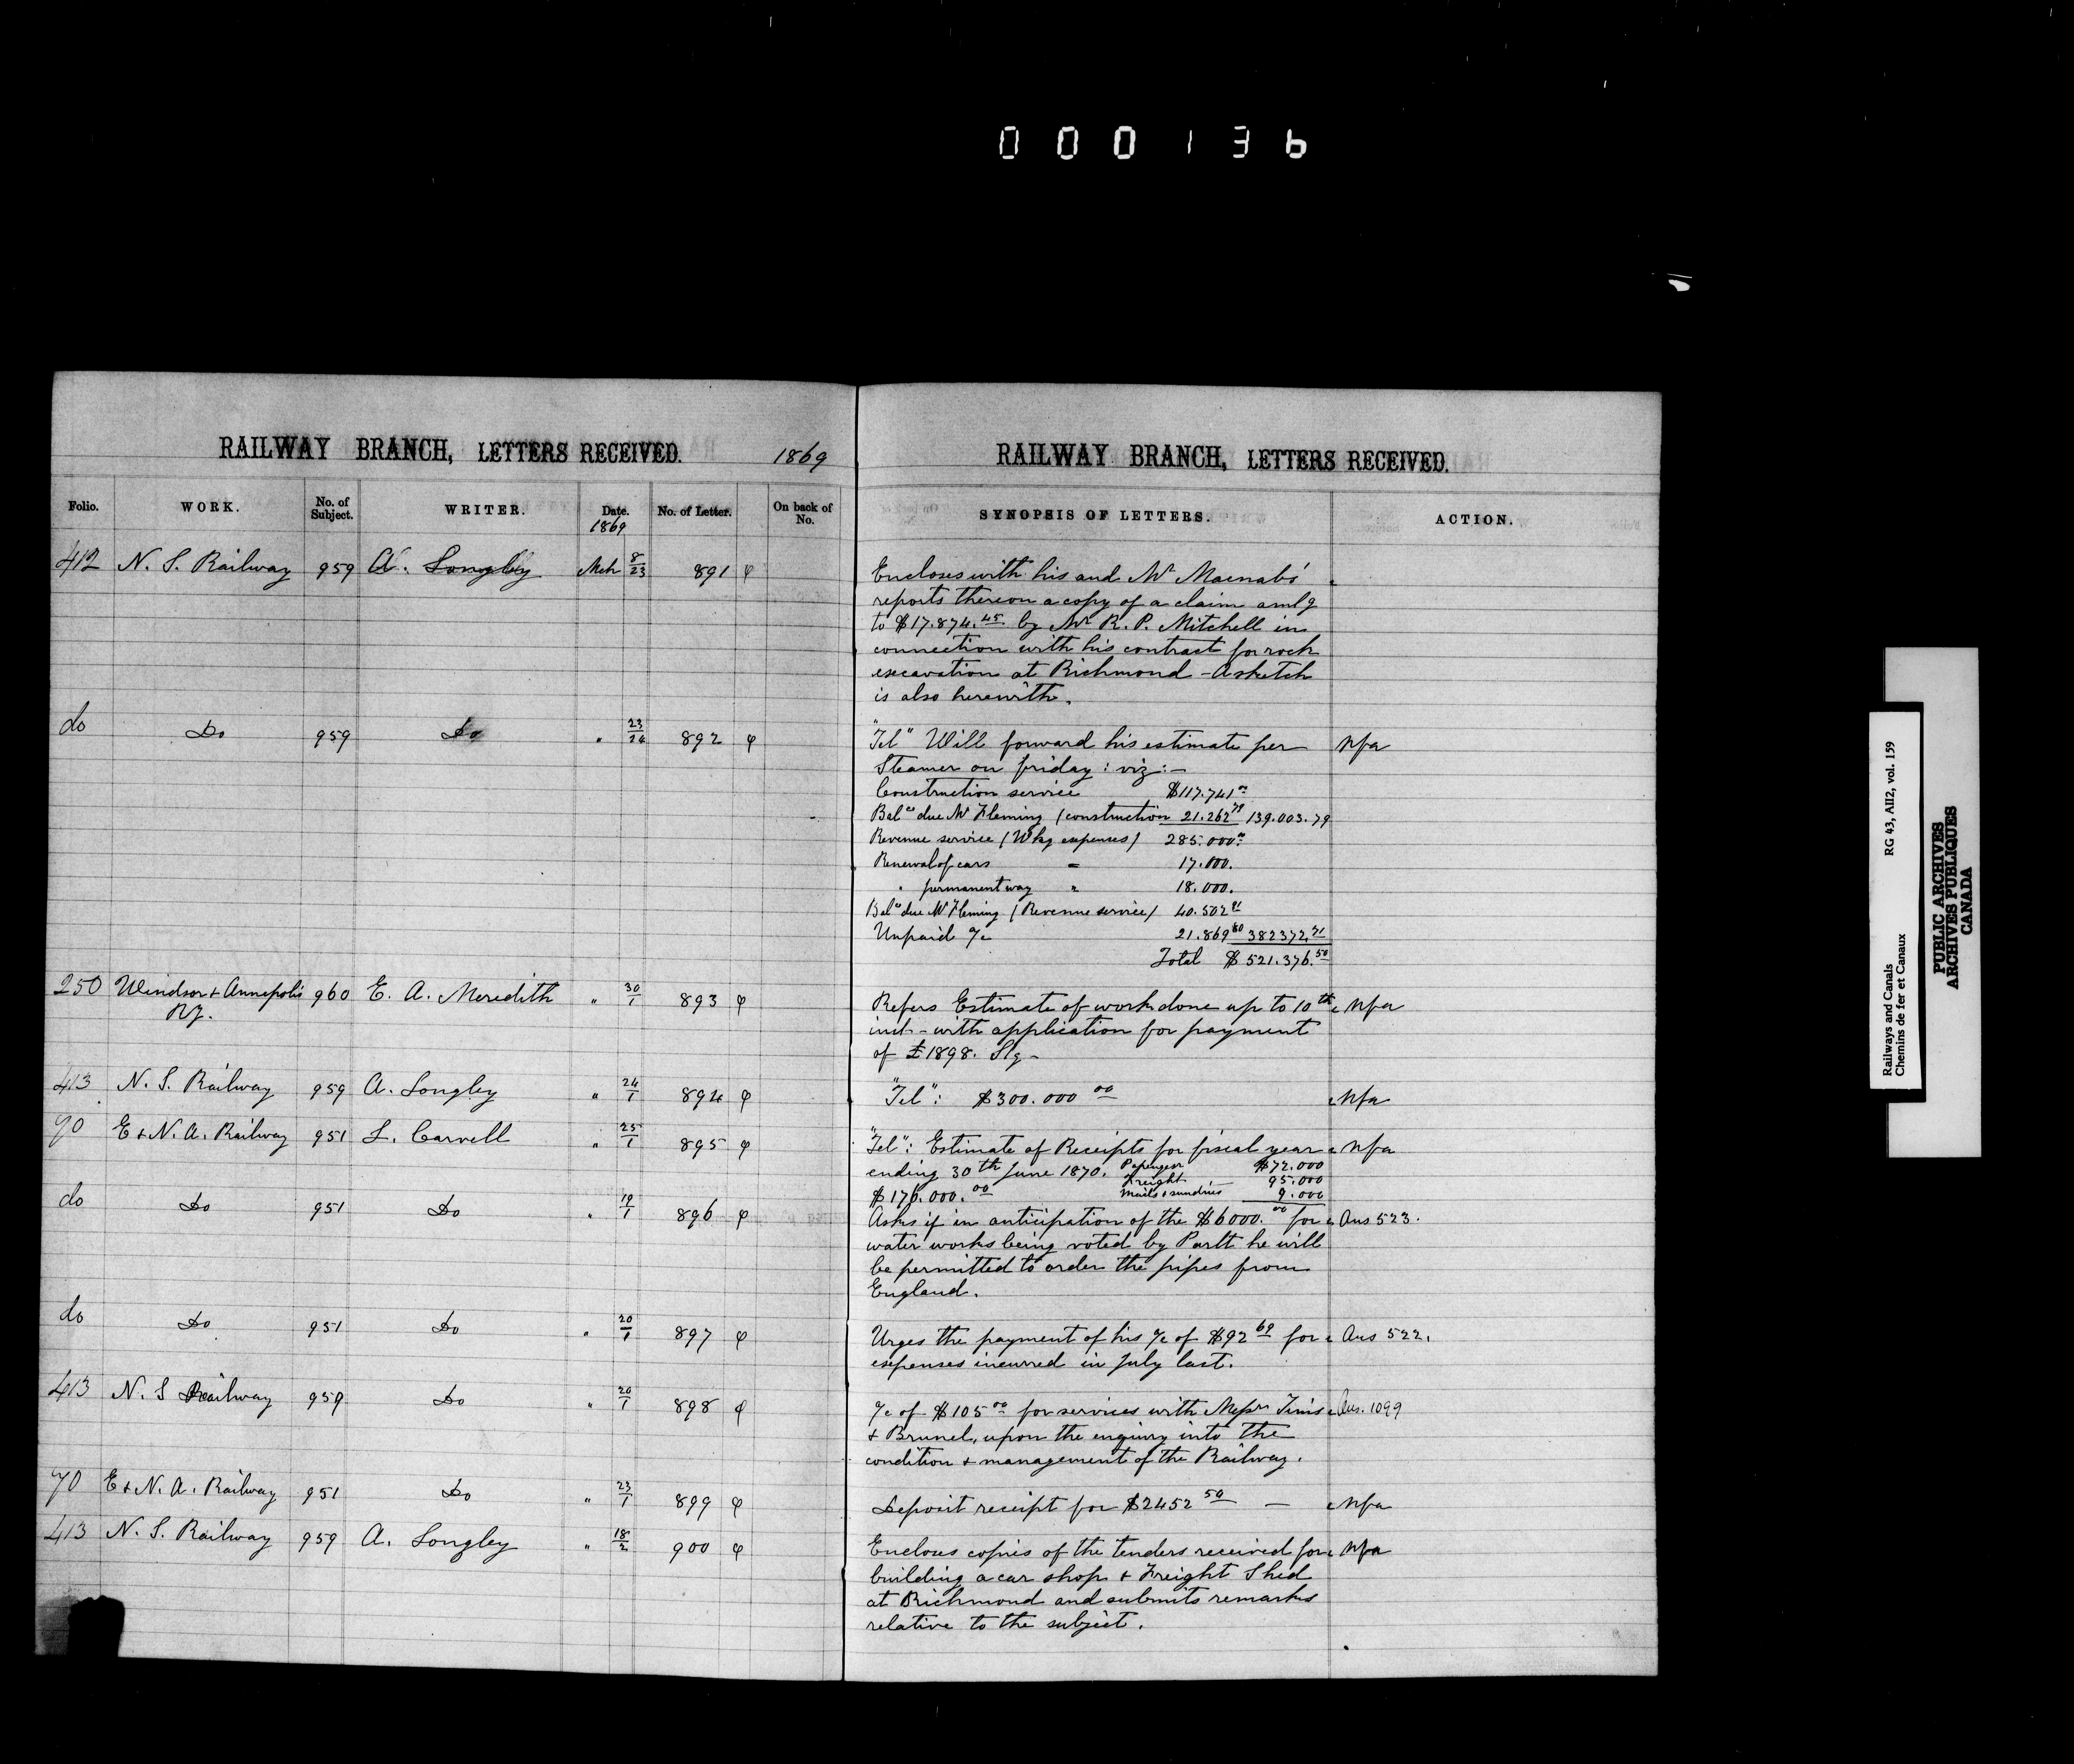 000136
RAILWAY BRANCH, LETTERS RECEIVED. 1869
Folio. WORK. No. of Subject. WRITER. Date. 1869 No. of Letter. On back of No.
412 N. S. Railway 959 A. Longley Mch 8/23 891 φ
do Do 959 Do " 23/24 892 φ
250 Windsor & Annapolis Ry. 960 E. A. Meredith " 30/1 893 φ
413 N. S. Railway 959 A. Longley " 24/1 894 φ
90 E & N. A. Railway 951 L. Carvell " 25/1 895 φ
do Do 951 Do " 19/1 896 φ
do Do 951 Do " 20/1 897 φ
413 N. S Railway 959 Do " 20/1 898 φ
90 E & N. A. Railway 951 Do " 23/1 899 φ
413 N. S. Railway 959 A. Longley " 18/2 900 φ
RAILWAY BRANCH, LETTERS RECEIVED.
SYNOPSIS OF LETTERS. ACTION.
Encloses with his and Mr Macnabs'
reports thereon a copy of a claim amtg
to $17.874.45 by Mr R. P. Mitchell in
connection with his contract for rock
excavation at Richmond - A sketch
is also herewith.
"Tel" Will forward his estimate per Nfa
Steamer on friday : viz :-
Construction service $117.741 00
Balce due Mr Fleming (construction 21.262 79 139.003.79
Revenue service (Wkg expenses) 285.000 00
Renewal of cars " 17.000.
" permanent way " 18.000.
Balce due Mr Fleming (Revenue service) 40.502 91
Unpaid a/c 21.869 80 382372.71
Total $521.376.50
Refers Estimate of work done up to 10th Nfa
inst - with application for payment
of £1898. Stg -
"Tel": $300.000 00 Nfa
"Tel": Estimate of Receipts for fiscal year Nfa
ending 30th June 1870. Passenger $72.000
Freight 95.000
$176.000.00 Mails & sundries 9.000
Asks if in anticipation of the $6000.00 for Ans 523.
water works being voted by Parlt he will
be permitted to order the pipes from
England.
Urges the payment of his a/c of $92 69 for Ans 522.
expenses incurred in July last.
a/c of $105 00 for services with Messrs Tims Ans. 1099
& Brunel, upon the enquiry into the
condition & management of the Railway.
Deposit receipt for $2452 50 — Nfa
Encloses copies of the tenders received for Nfa
building a car shop & Freight Shed
at Richmond and submits remarks
relative to the subject.
Railways and Canals RG 43, AII2, vol. 159
Chemins de fer et Canaux
PUBLIC ARCHIVES
ARCHIVES PUBLIQUES
CANADA